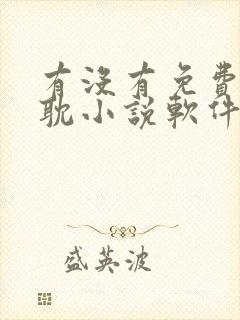 有没有免費
耽小說軟件
盛英波